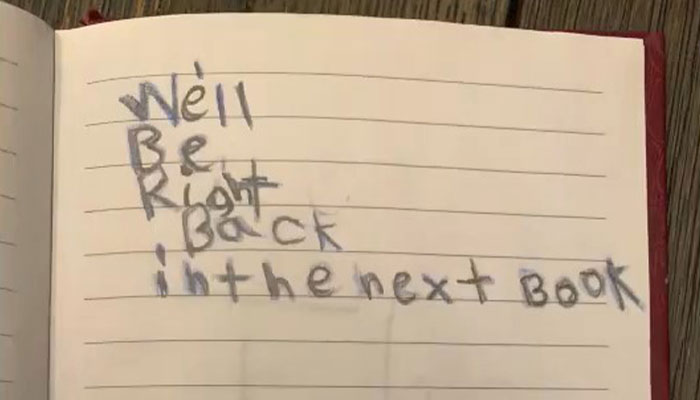 We'll
Be
Right
Back
in the next BOOK